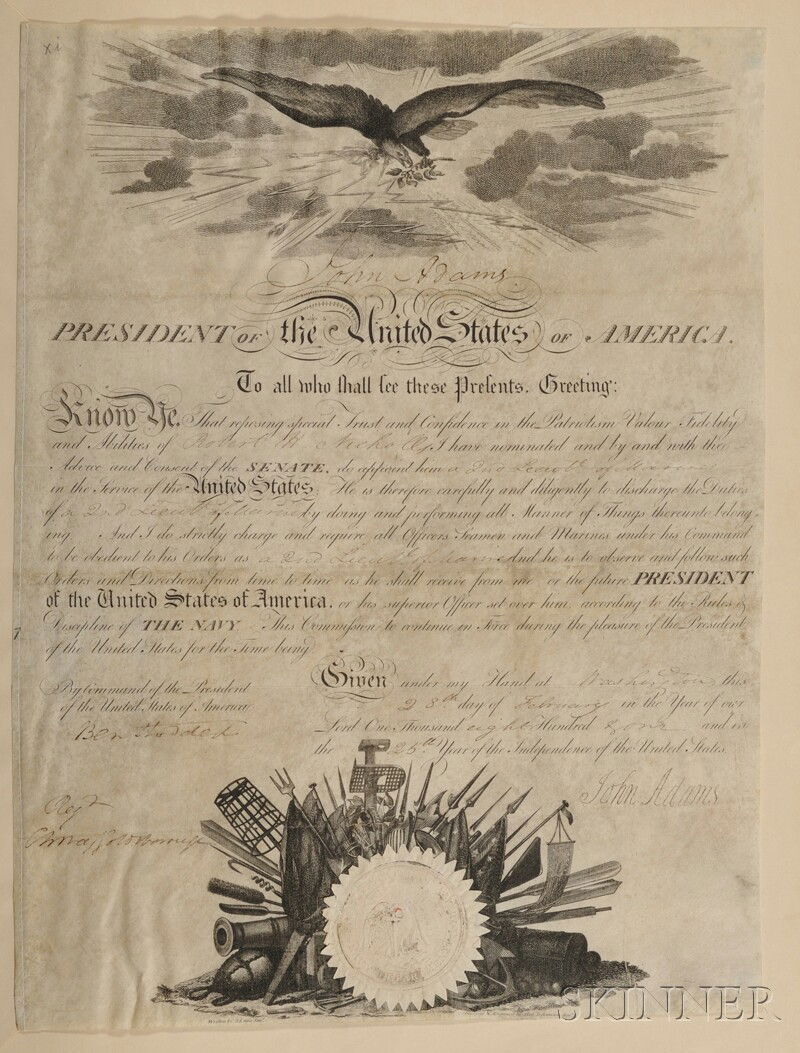 xi
John Adams
PRESIDENT OF the United States OF AMERICA.
To all who shall see these Presents. Greeting:
Know Ye. That reposing special Trust and Confidence in the Patriotism Valour, Fidelity
and Abilities of Robert I have nominated and by and with the
Advice and Consent of the SENATE, do appoint him a 2nd Lieut of
in the Service of the United States: He is therefore carefully and diligently to discharge the Duties
of a 2nd Lieut of by doing and performing all Manner of Things thereunto belong
ing. And I do strictly charge and require all Officers Seamen and Marines under his Command
to be obedient to his Orders as a 2nd Lieut of And he is to observe and follow such
Orders and Directions from time to time as he shall receive from me or the future PRESIDENT
of the United States of America, or his superior Officer set over him, according to the Rules &
Discipline of THE NAVY This Commission to continue in Force during the pleasure of the President
of the United States for the Time being
Given under my Hand at Washington this
28th day of February in the Year of our
Lord One Thousand eight Hundred & one and in
the 25th Year of the Independence of the United States.
By Command of the President
of the United States of America
Ben Stoddert
John Adams
Regd
SKINNER